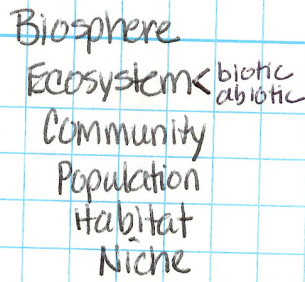 Biosphere
Ecosystem< biotic
abiotic
Community
Population
Habitat
Niche